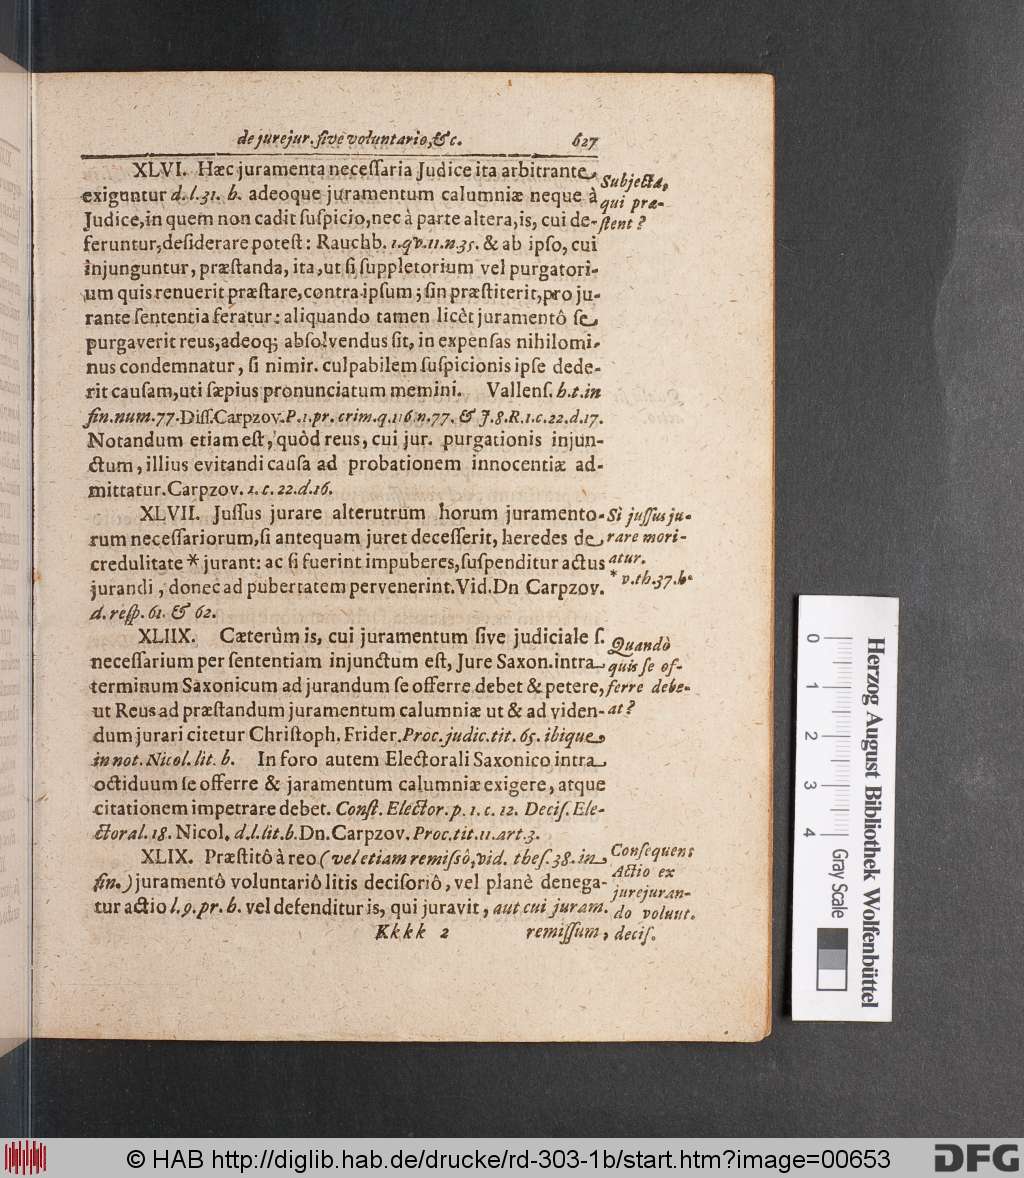 de jurejur. sive voluntario, &c. 627
XLVI. Hæc juramenta necessaria Judice ita arbitrante
exiguntur d. l. 31. b. adeoque juramentum calumniæ neque à
Judice, in quem non cadit suspicio, nec à parte altera, is, cui de-
feruntur, desiderare potest: Rauchb. 1. qv. 11. n. 35. & ab ipso, cui
injunguntur, præstanda, ita, ut si suppletorium vel purgatori-
um quis renuerit præstare, contra ipsum; sin præstiterit, pro ju-
rante sententia feratur: aliquando tamen licèt juramentô se
purgaverit reus, adeoq; absolvendus sit, in expensas nihilomi-
nus condemnatur, si nimir. culpabilem suspicionis ipse dede-
rit causam, uti sæpius pronunciatum memini. Vallens. h. t. in
fin. num. 77. Diss. Carpzov. P. 1. pr. crim. q. 116 n. 77. & J. 8. R. 1. c. 22. d. 17.
Notandum etiam est, quòd reus, cui jur. purgationis injun-
ctum, illius evitandi causa ad probationem innocentiæ ad-
mittatur. Carpzov. 1. c. 22. d. 16.
Subjecta,
qui præ-
stent?
XLVII. Jussus jurare alterutrum horum juramento-
rum necessariorum, si antequam juret decesserit, heredes de
credulitate * jurant: ac si fuerint impuberes, suspenditur actus
jurandi, donec ad pubertatem pervenerint. Vid. Dn Carpzov.
d. resp. 61. & 62.
Si jussus ju-
rare mori-
atur.
* v. th. 37. b.
XLIIX. Cæterùm is, cui juramentum sive judiciale s.
necessarium per sententiam injunctum est, Jure Saxon. intra
terminum Saxonicum ad jurandum se offerre debet & petere,
ut Reus ad præstandum juramentum calumniæ ut & ad viden-
dum jurari citetur Christoph. Frider. Proc. judic. tit. 65. ibique
in not. Nicol. lit. b. In foro autem Electorali Saxonico intra
octiduum se offerre & jaramentum calumniæ exigere, atque
citationem impetrare debet. Const. Elector. p. 1. c. 12. Decis. Ele-
ctoral. 18. Nicol. d. l. lit. b. Dn. Carpzov. Proc. tit. 11. art. 3.
Quandò
quis se of-
ferre debe-
at?
XLIX. Præstitô à reo (vel etiam remissô, vid. thes. 38. in
fin.) juramentô voluntariô litis decisoriô, vel planè denega-
tur actio l. 9. pr. b. vel defenditur is, qui juravit, aut cui juram.
Consequens
Actio ex
jurejuran-
do volunt.
decis.
Kkkk 2 remissum,
0 1 2 3 4
Gray Scale
Herzog August Bibliothek Wolfenbüttel
© HAB http://diglib.hab.de/drucke/rd-303-1b/start.htm?image=00653
DFG